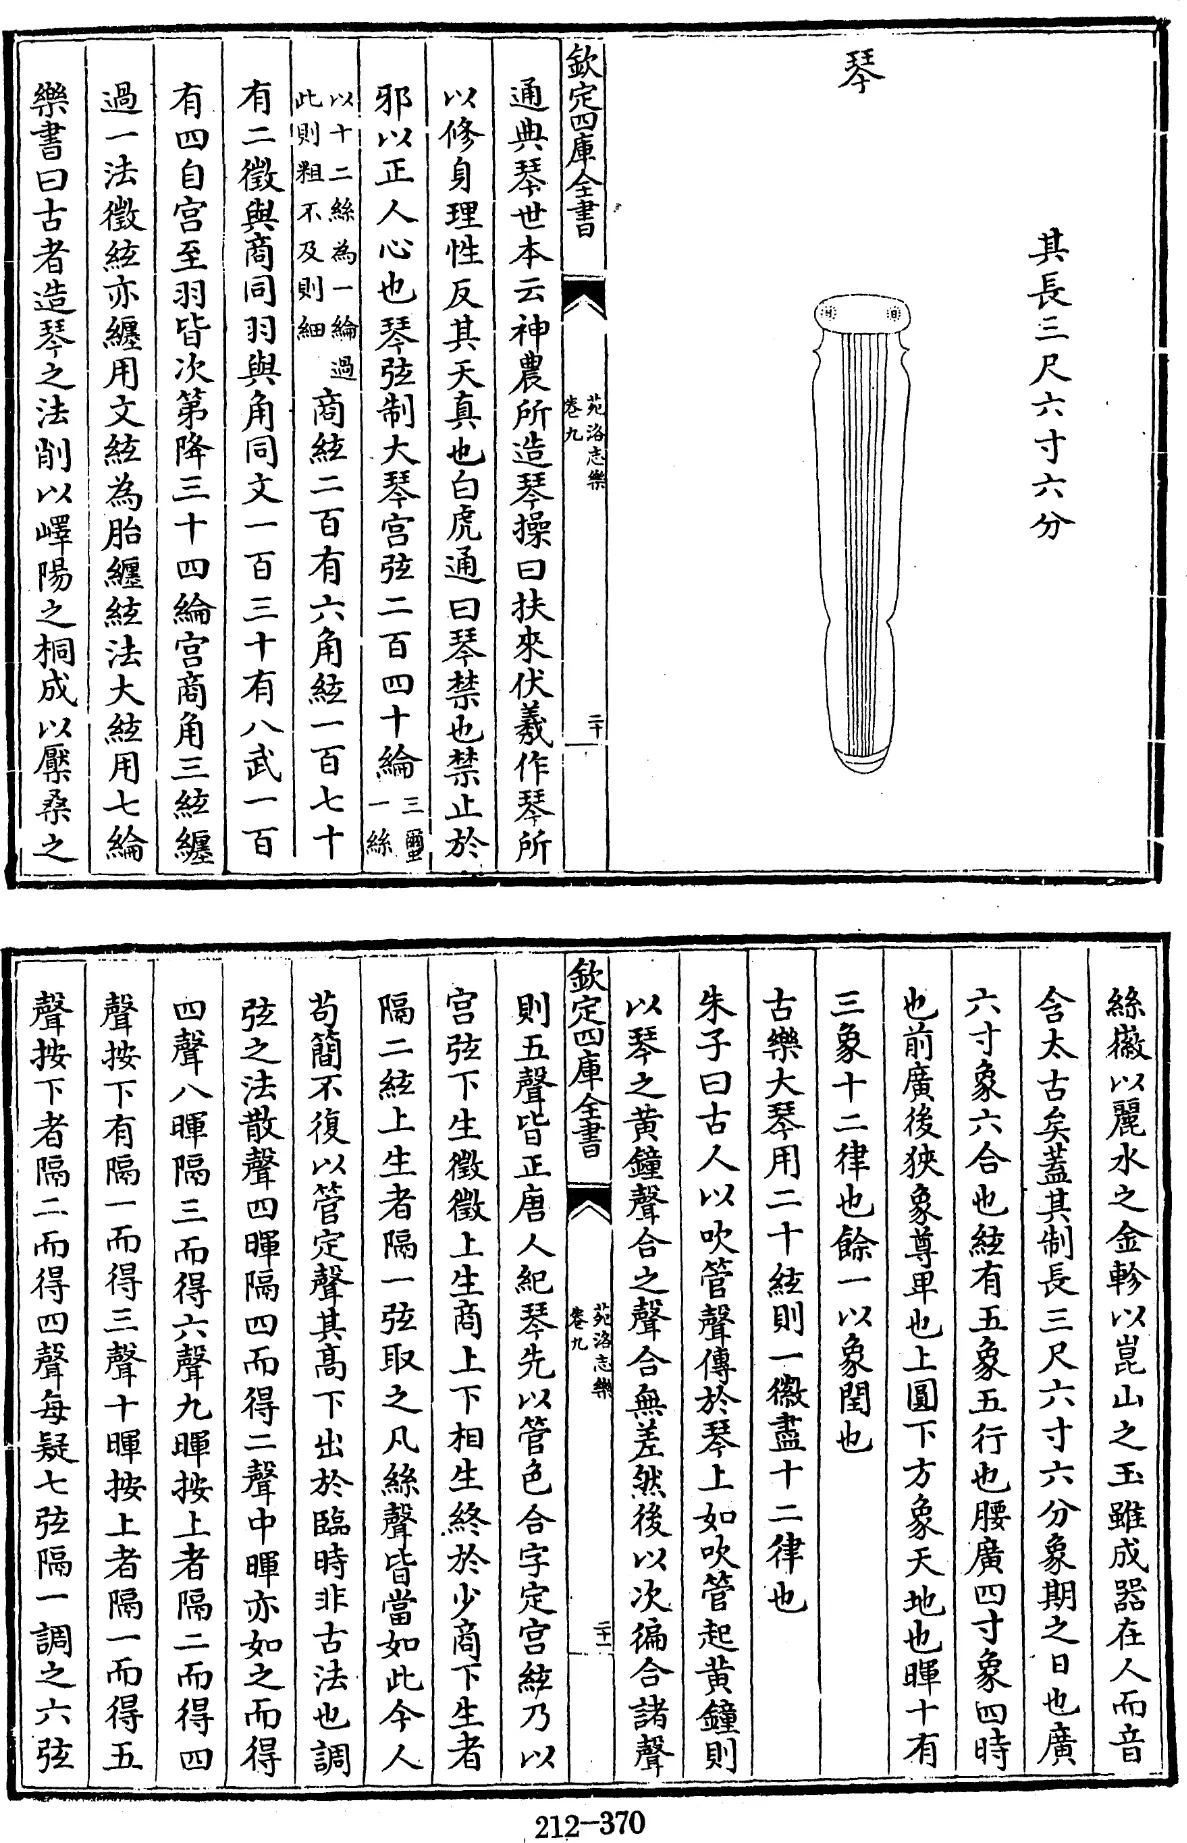 琴
其長三尺六寸六分
欽定四庫全書
苑洛志樂
卷九
二十
通典琴世本云神農所造琴操曰扶來伏羲作琴所
以修身理性反其天真也白虎通曰琴禁也禁止於
邪以正人心也琴弦制大琴宫弦二百四十綸三蠒一絲
以十二絲為一綸過此則粗不及則細商絃二百有六角絃一百七十
有二徵與商同羽與角同文一百三十有八武一百
有四自宫至羽皆次第降三十四綸宫商角三絃纒
過一法徵絃亦纒用文絃為胎纒絃法大絃用七綸
樂書曰古者造琴之法削以嶧陽之桐成以檿桑之
絲徽以麗水之金軫以崑山之玉雖成器在人而音
含太古矣葢其制長三尺六寸六分象期之日也廣
六寸象六合也絃有五象五行也腰廣四寸象四時
也前廣後狹象尊卑也上圓下方象天地也暉十有
三象十二律也餘一以象閏也
古樂大琴用二十絃則一徽盡十二律也
朱子曰古人以吹管聲傳於琴上如吹管起黄鐘則
以琴之黄鐘聲合之聲合無差然後以次徧合諸聲
欽定四庫全書
苑洛志樂
卷九
二十一
則五聲皆正唐人紀琴先以管色合字定宫絃乃以
宫弦下生徵徵上生商上下相生終於少商下生者
隔二絃上生者隔一弦取之凡絲聲皆當如此今人
苟簡不復以管定聲其高下出於臨時非古法也調
弦之法散聲四暉隔四而得二聲中暉亦如之而得
四聲八暉隔三而得六聲九暉按上者隔二而得四
聲按下有隔一而得三聲十暉按上者隔一而得五
聲按下者隔二而得四聲每疑七弦隔一調之六弦
212-370